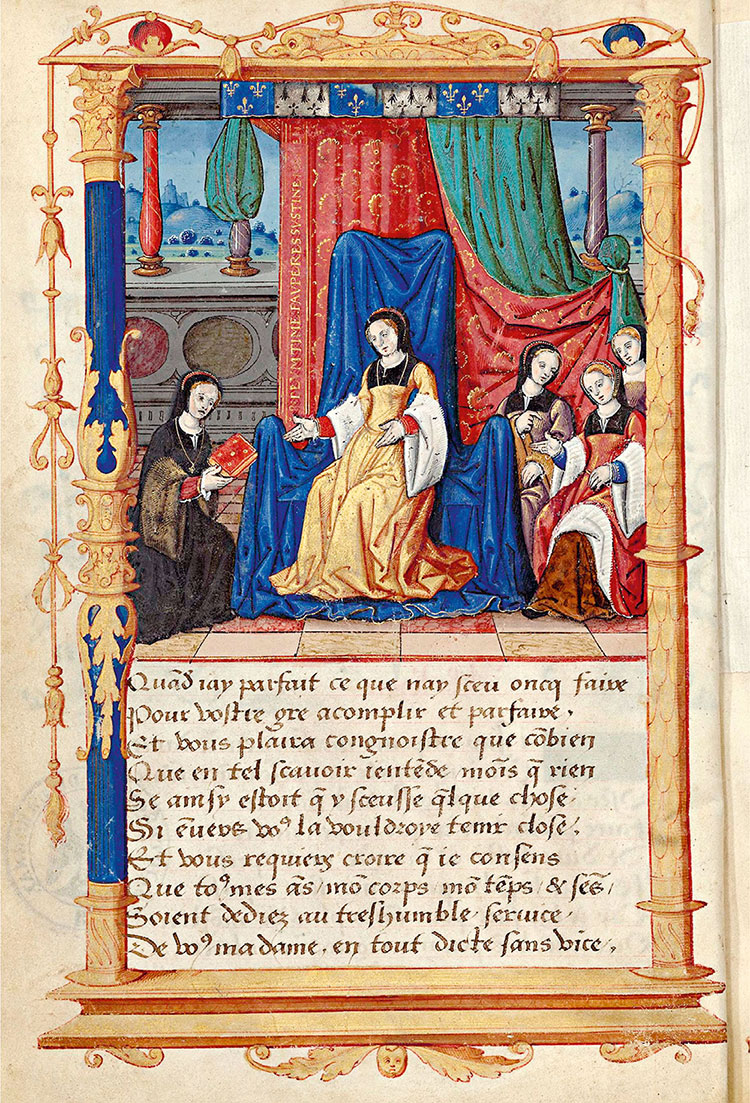 DEVM TIME PAVPERES SVSTINE
Quãd iay parfait ce que nay sceu oncq faire
Pour vostre gre acomplir et parfaire,
Et vous plaira congnoistre que cõbien
Que en tel scavoir ientẽde moĩs q̃ rien
Se ainsy estoit q̃ y sceusse q̃lque chose
Si ẽuers voꝰ la vouldroye tenir close,
Et vous requiers croire q̃ ie consens
Que toꝰ mes ãs / mõ corps / mõ tẽps / & sẽs /
Soient dediez au treshumble seruice
De voꝰ ma dame, en tout dicte sans vice,